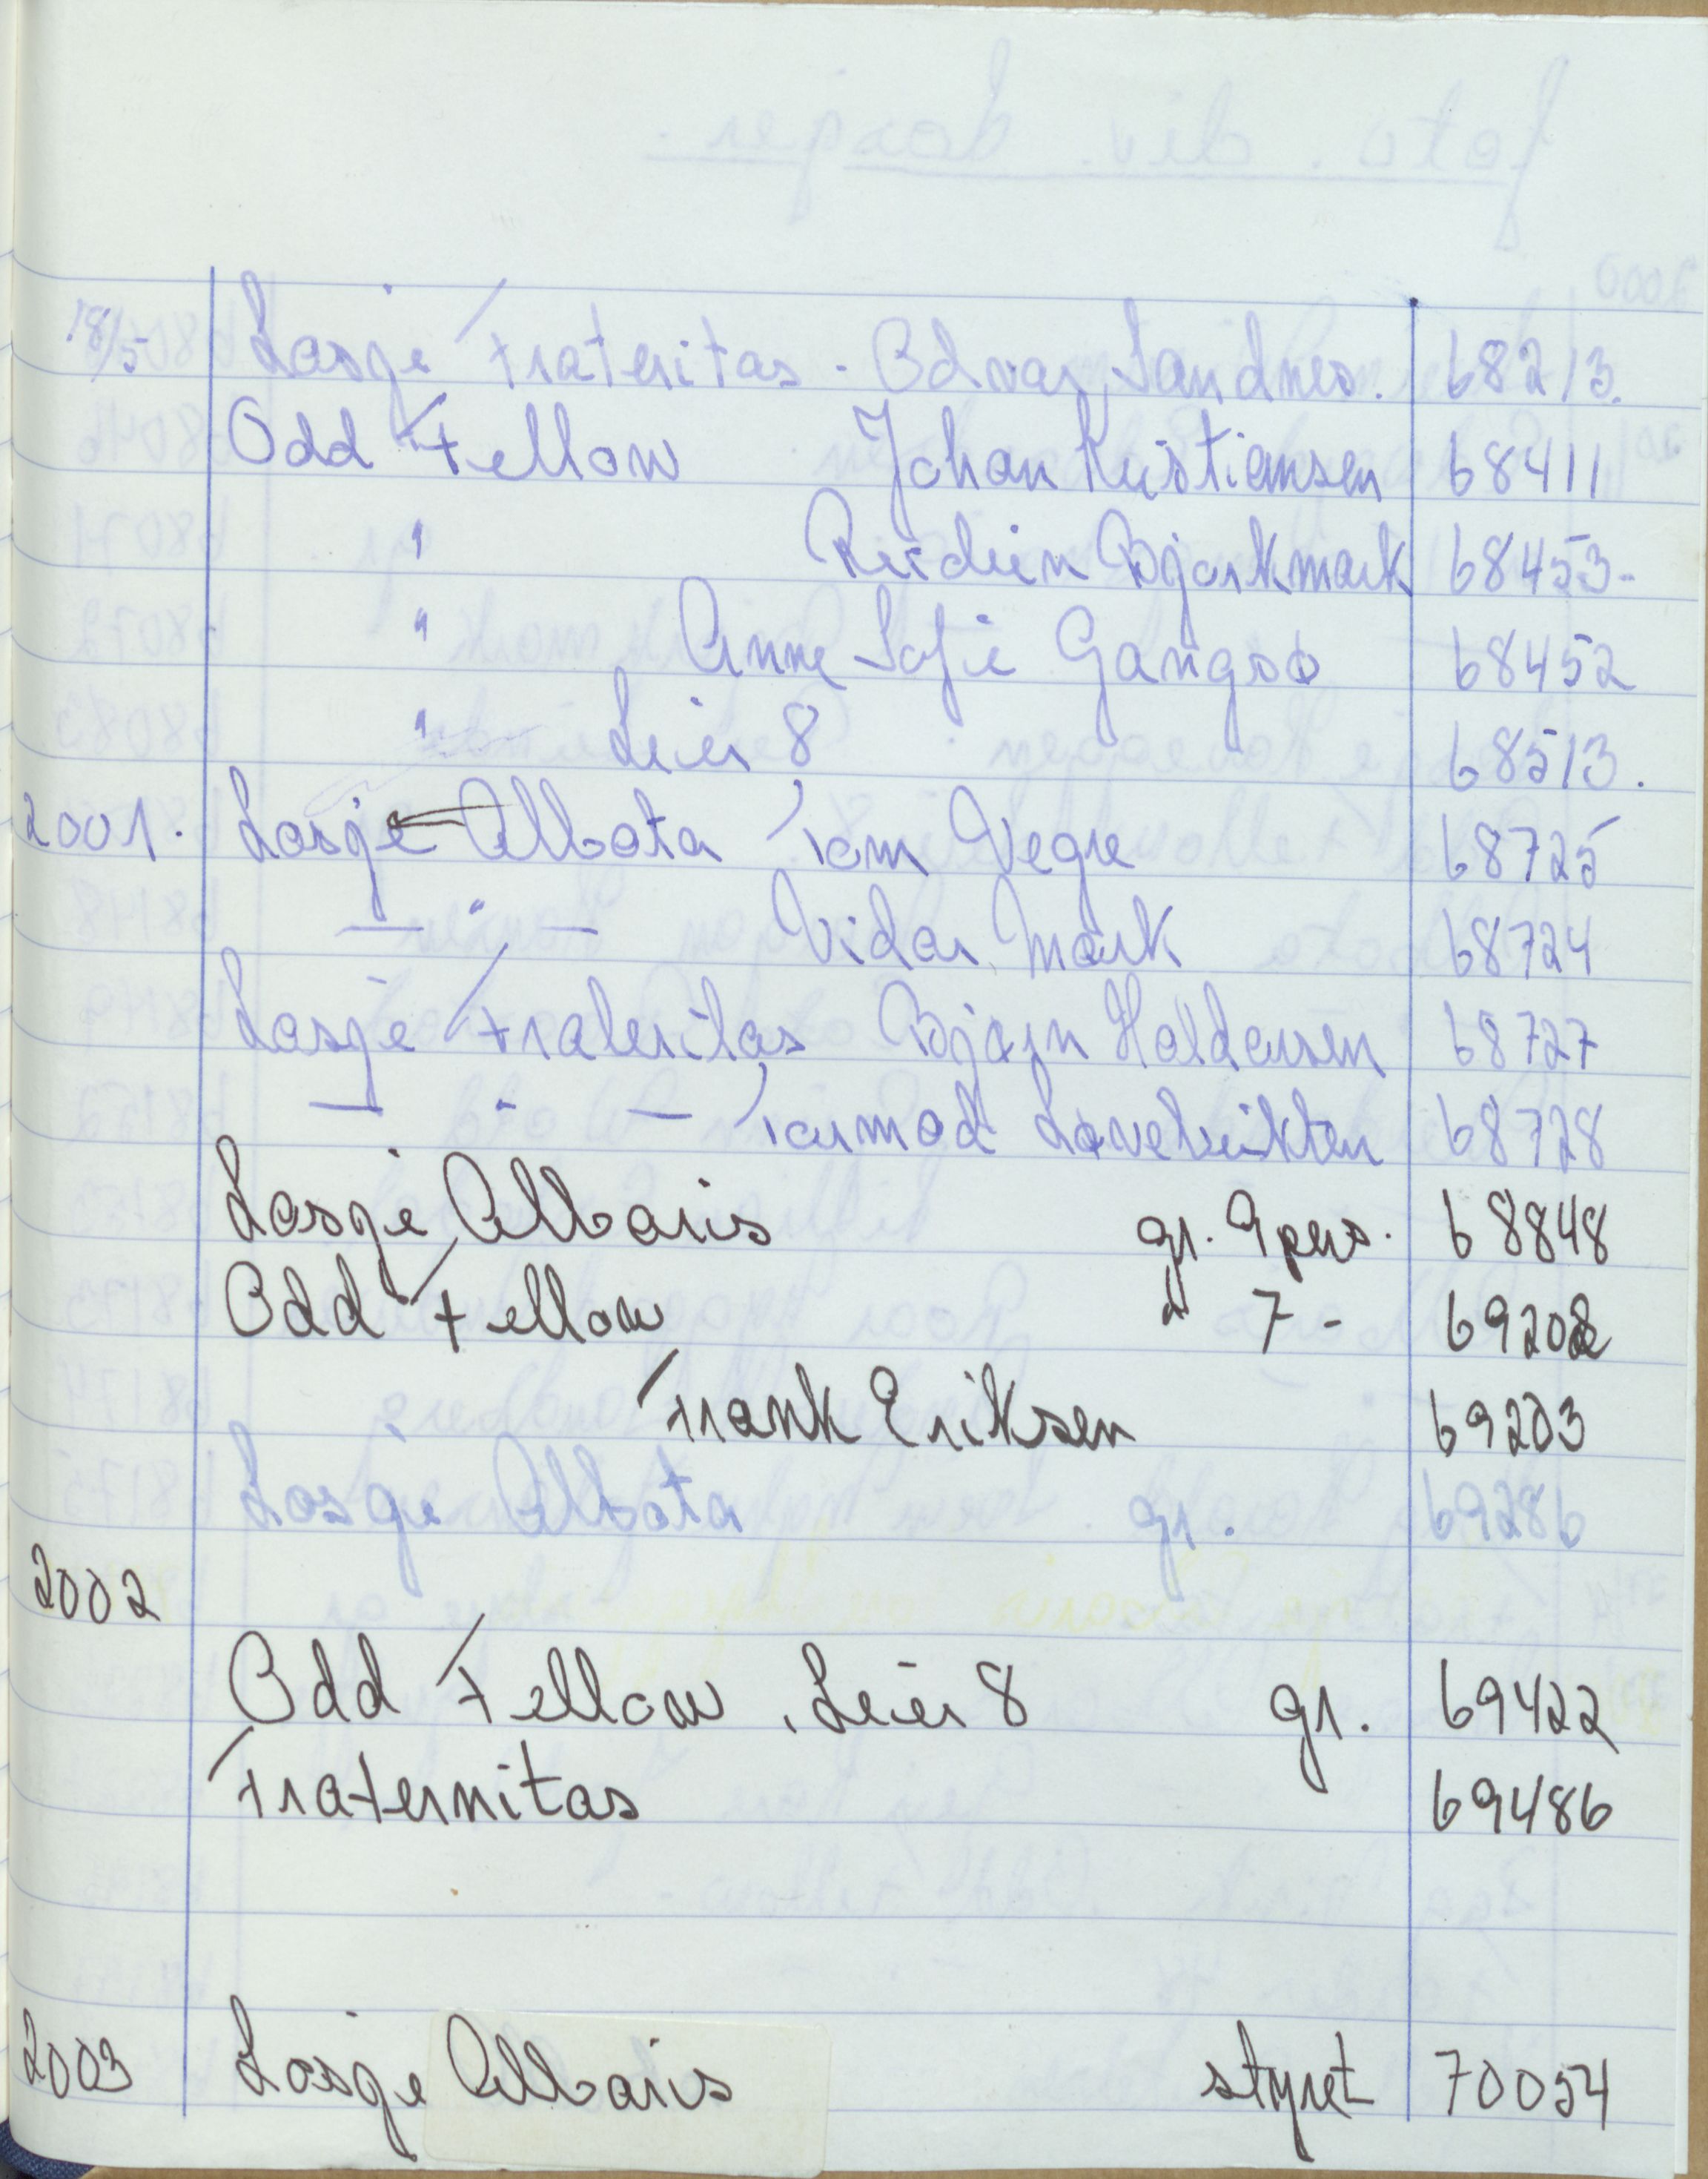 18/5 Losje Frateritas - Odvar Sandnes. 68213.
Odd Fellow Johan Kristiansen 68411
" Reidun Bjørkmark 68453-
" Anne Sofie Gangsø 68452
" Leir 8 68513.
2001. Losje Albata Tom Vegre 68725
— " — Vidar Mørk 68724
Losje Frateritas Bjørn Haldorsen 68727
— " — Tormod 68728
Losje Albaris gr. 9 pers. 68848
Odd Fellow " 7 - 69202
Frank Eriksen 69203
Losje Albata gr. 69286
2002
Odd Fellow. Leir 8 gr. 69422
Fraternitas 69486
2003 Losje Albaris styret 70054